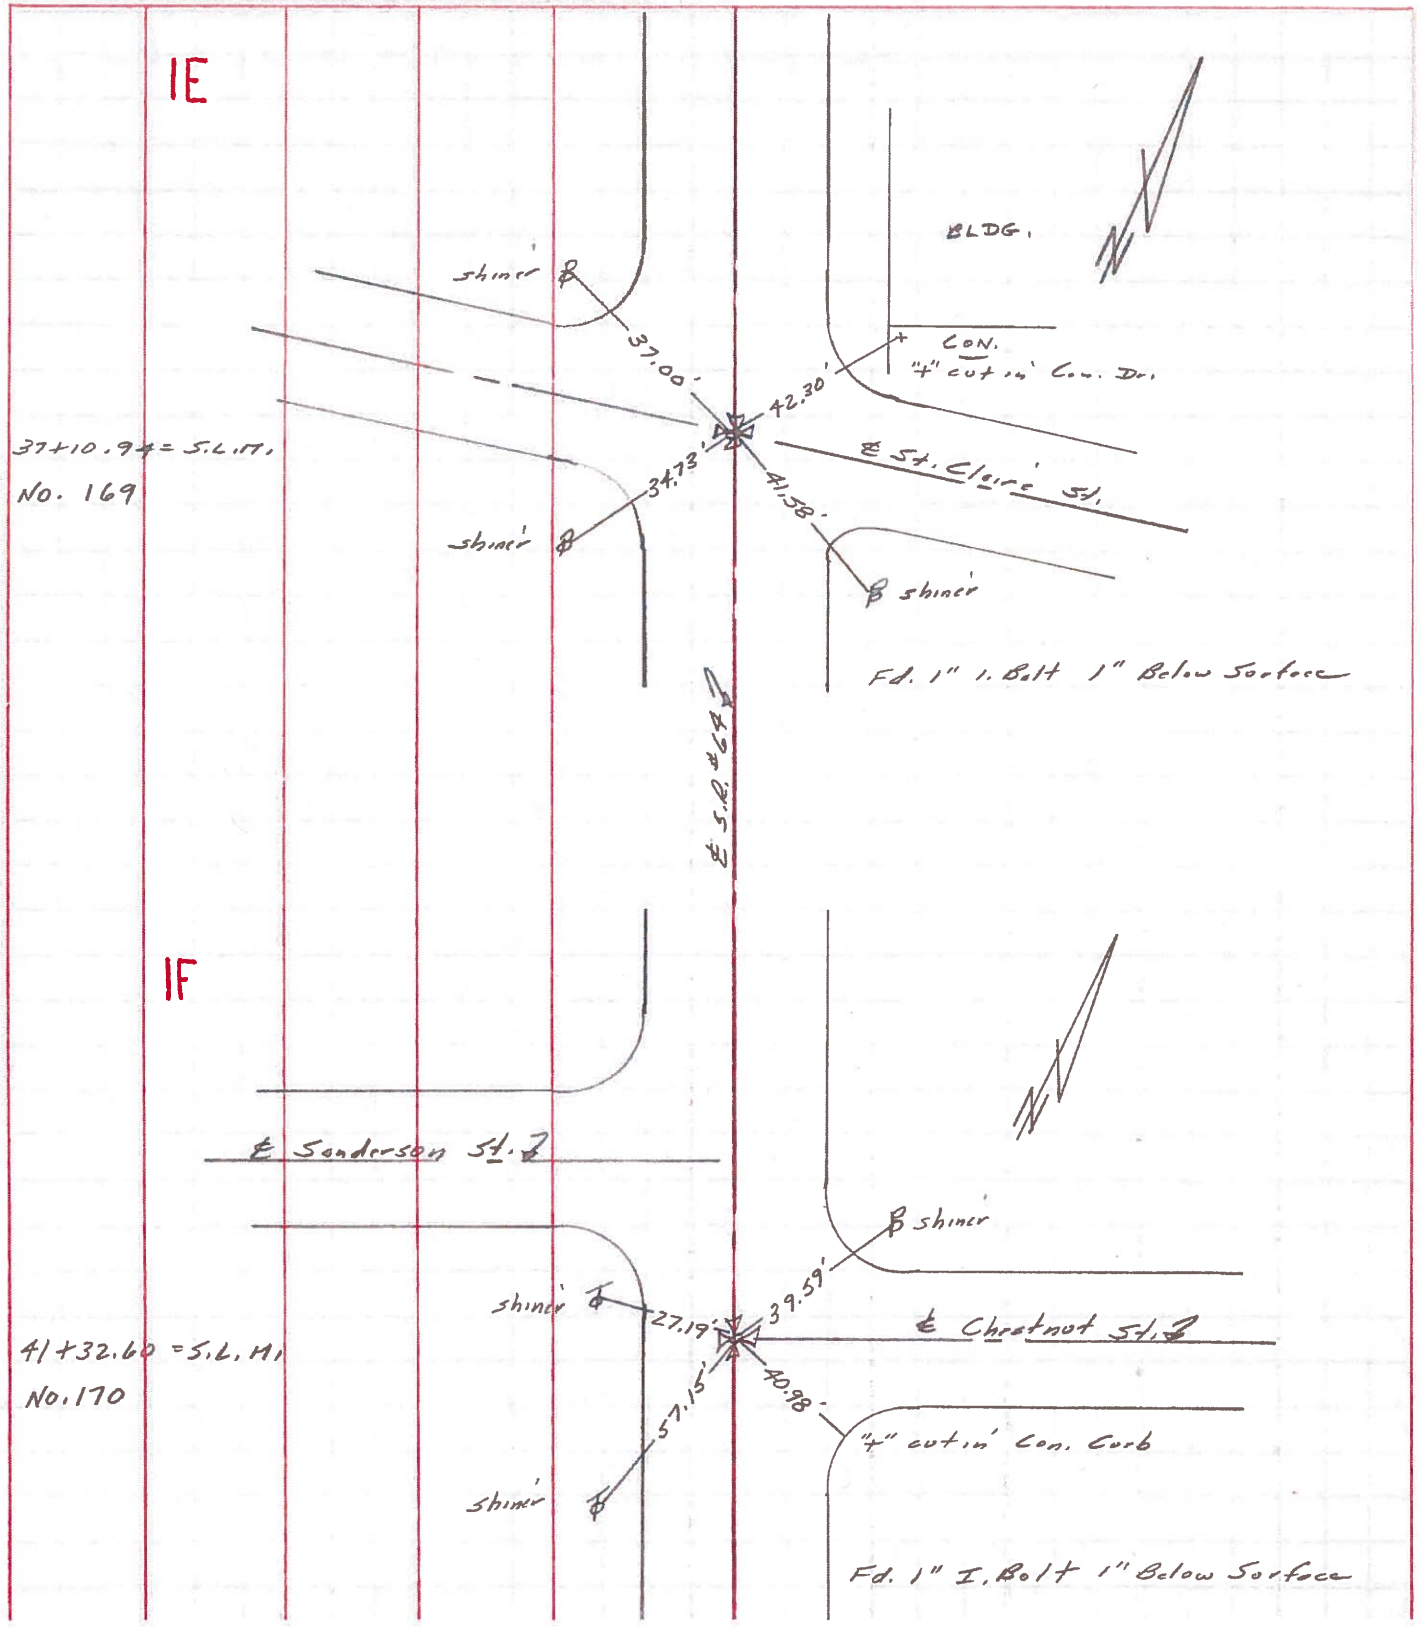 IE
BLDG.
N
shiner
37.00'
CON.
"+" cut in Con. Dr.
42.30'
37+10.94 = S.L.M.
No. 169
34.73'
41.58'
℄ St. Claire St.
shiner
shiner
Fd. 1" I. Bolt 1" Below Surface
℄ S.R. #64
IF
N
℄ Sanderson St.
shiner
39.59'
shiner
27.19'
℄ Chestnut St.
41+32.60 = S.L.M.
No. 170
57.15'
40.98'
"+" cut in Con. Curb
shiner
Fd. 1" I. Bolt 1" Below Surface